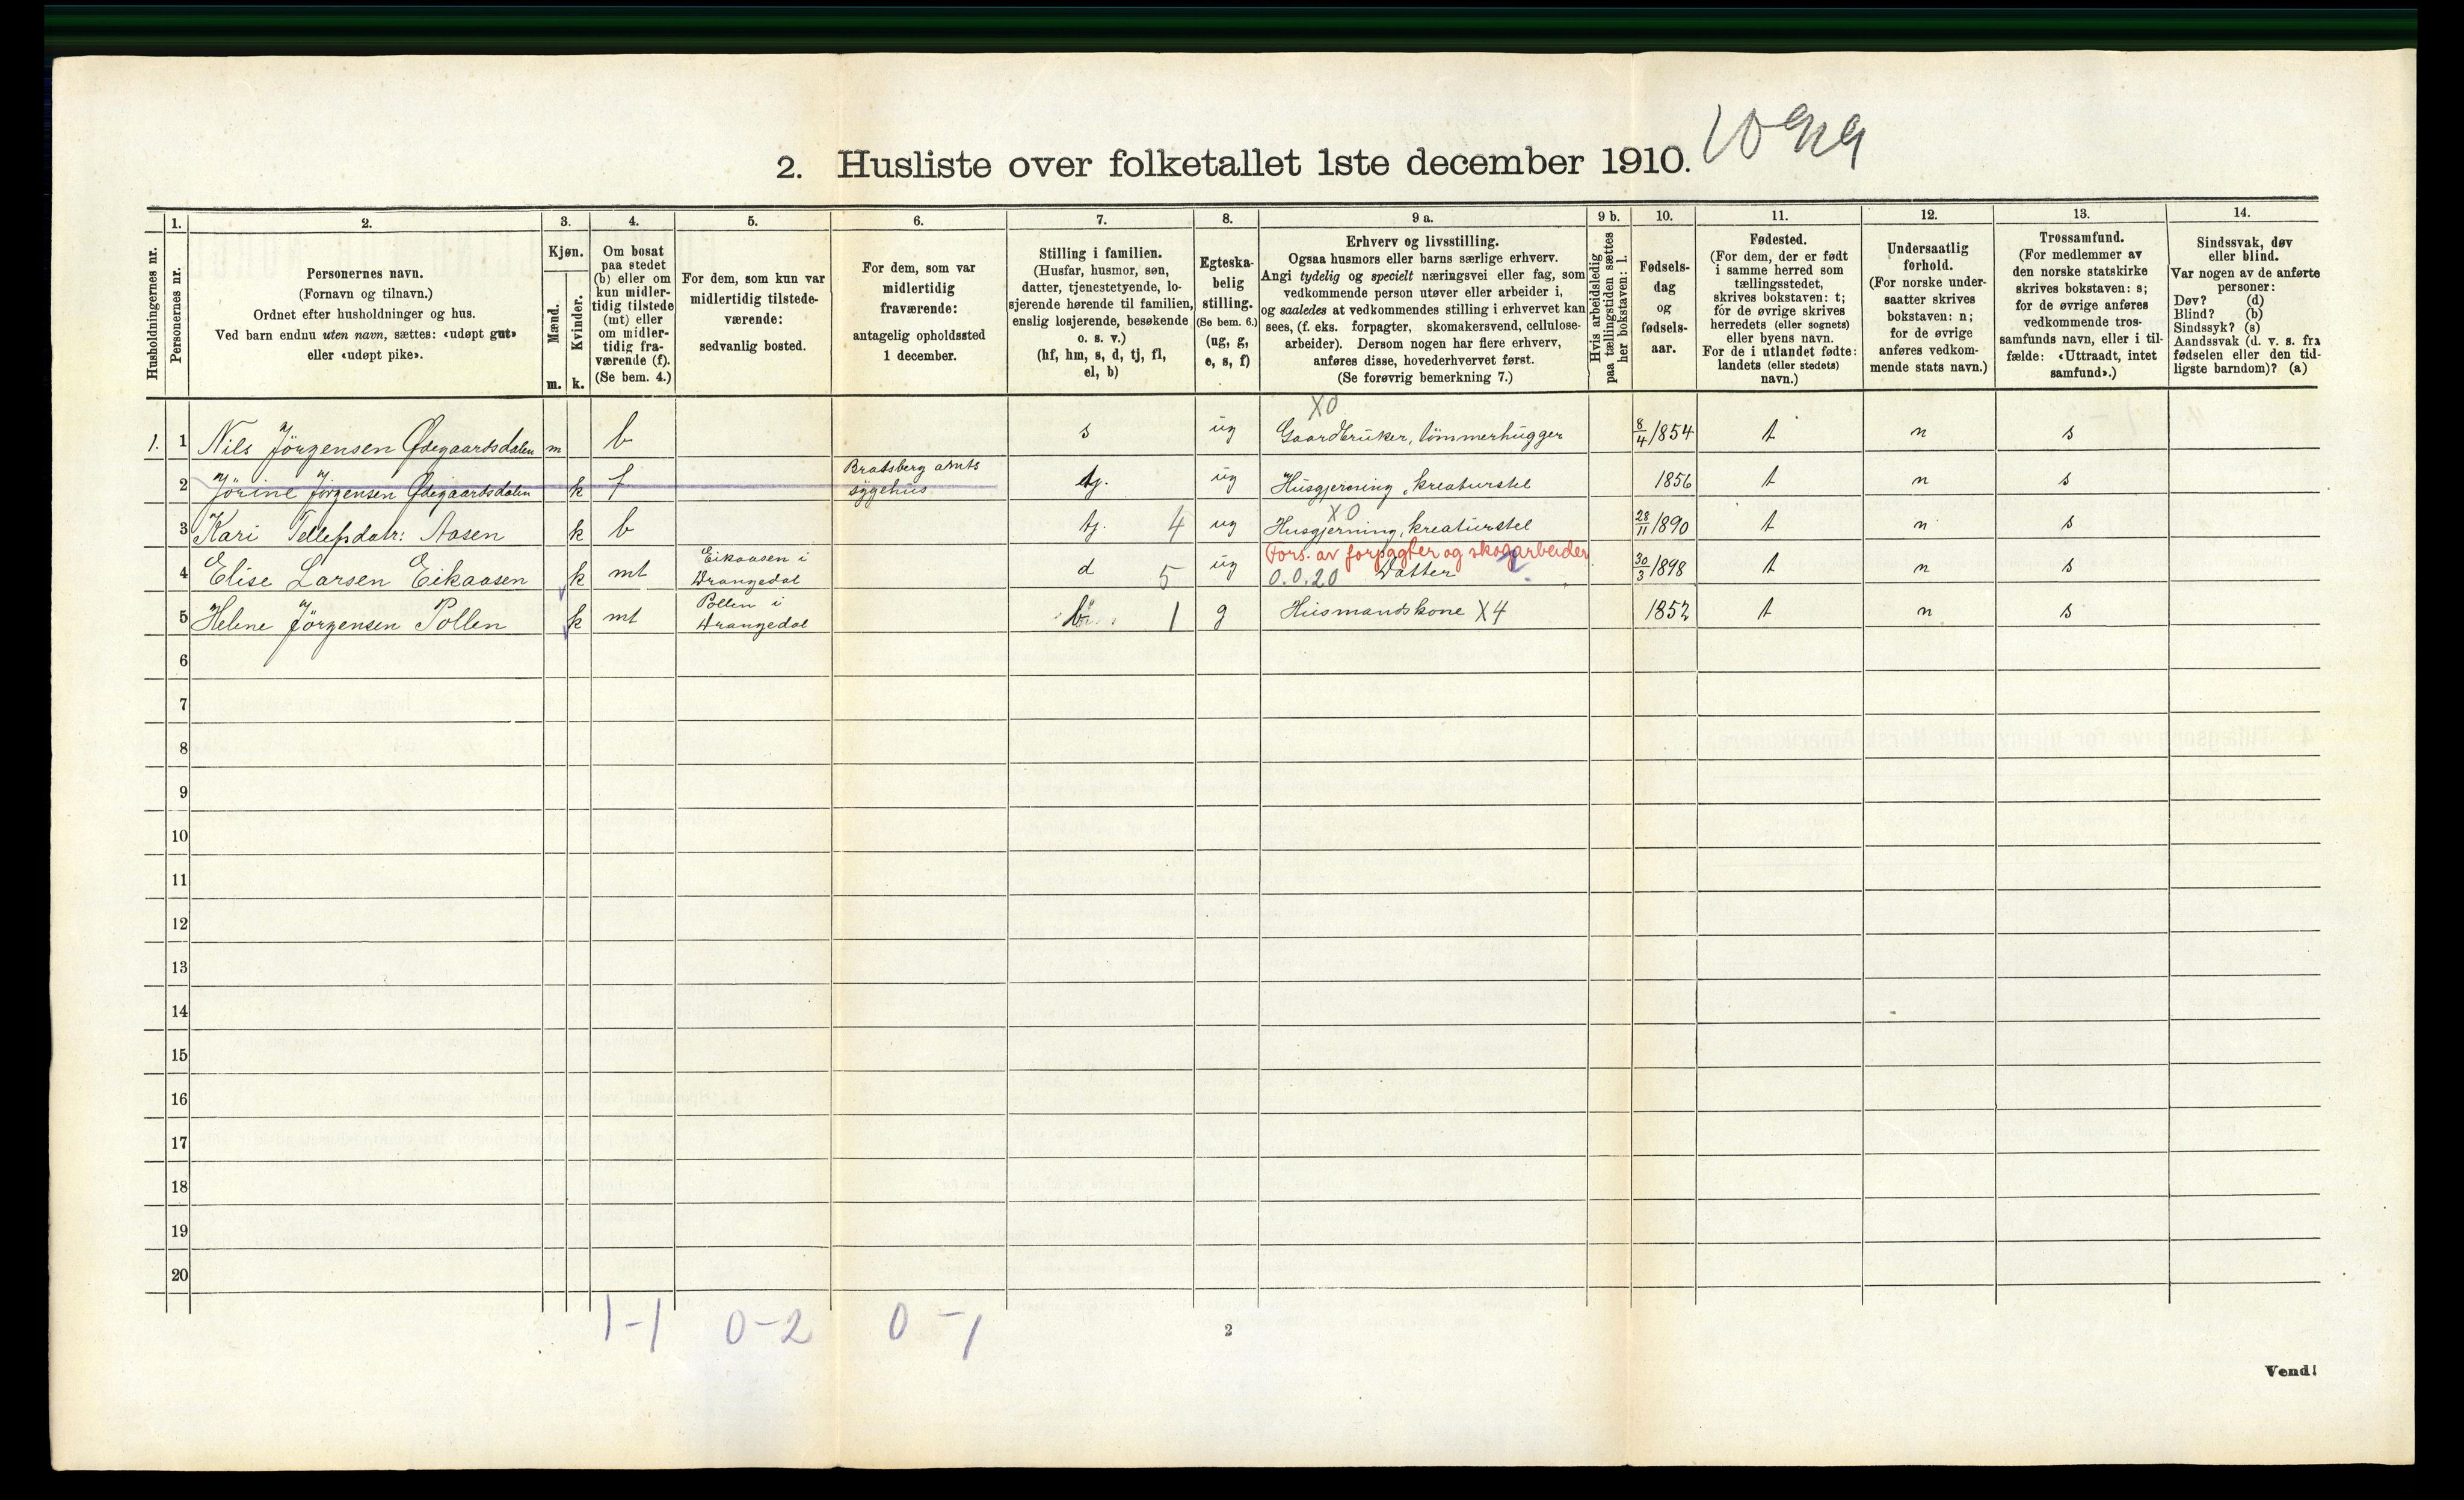 2. Husliste over folketallet 1ste december 1910.
Husholdningernes nr.
1.
Personernes nr.
2.
Personernes navn.
(Fornavn og tilnavn.)
Ordnet efter husholdninger og hus.
Ved barn endnu uten navn, sættes: «udøpt gut»
eller «udøpt pike».
3.
Kjøn.
Mænd.
Kvinder.
m. k.
4.
Om bosat
paa stedet
(b) eller om
kun midler-
tidig tilstede
(mt) eller
om midler-
tidig fra-
værende (f).
(Se bem. 4.)
5.
For dem, som kun var
midlertidig tilstede-
værende:
sedvanlig bosted.
6.
For dem, som var
midlertidig
fraværende:
antagelig opholdssted
1 december.
7.
Stilling i familien.
(Husfar, husmor, søn,
datter, tjenestetyende, lo-
sjerende hørende til familien,
enslig losjerende, besøkende
o. s. v.)
(hf, hm, s, d, tj, fl,
el, b)
8.
Egteska-
belig
stilling.
(Se bem. 6.)
(ug, g,
e, s, f)
9 a.
Erhverv og livsstilling.
Ogsaa husmors eller barns særlige erhverv.
Angi tydelig og specielt næringsvei eller fag, som
vedkommende person utøver eller arbeider i,
og saaledes at vedkommendes stilling i erhvervet kan
sees, (f. eks. forpagter, skomakersvend, cellulose-
arbeider). Dersom nogen har flere erhverv,
anføres disse, hovederhvervet først.
(Se forøvrig bemerkning 7.)
9 b.
Hvis arbeidsledig
paa tællingstiden sættes
her bokstaven: l.
10.
Fødsels-
dag
og
fødsels-
aar.
11.
Fødested.
(For dem, der er født
i samme herred som
tællingsstedet,
skrives bokstaven: t;
for de øvrige skrives
herredets (eller sognets)
eller byens navn.
For de i utlandet fødte:
landets (eller stedets)
navn.)
12.
Undersaatlig
forhold.
(For norske under-
saatter skrives
bokstaven: n;
for de øvrige
anføres vedkom-
mende stats navn.)
13.
Trossamfund.
(For medlemmer av
den norske statskirke
skrives bokstaven: s;
for de øvrige anføres
vedkommende tros-
samfunds navn, eller i til-
fælde: «Uttraadt, intet
samfund».)
14.
Sindssvak, døv
eller blind.
Var nogen av de anførte
personer:
Døv? (d)
Blind? (b)
Sindssyk? (s)
Aandssvak (d. v. s. fra
fødselen eller den tid-
ligste barndom)? (a)
X0
1. 1 Nils Jörgensen Ødegaardsdalen m b s ug Gaardbruker, tömmerhugger 8/4 1854 t n s
2 Jörine Jörgensen Ødegaardsdalen k f Bratsberg amts sygehus tj. ug Husgjerning, kreaturstel 1856 t n s
X0
3 Kari Tellefsdatr: Aasen k b tj. 4 ug Husgjerning, kreaturstel 28/11 1890 t n s
Fors. av forpagter og skogarbeider
4 Elise Larsen Eikaasen k mt Eikaasen i Drangedal d 5 ug 0.0.20 Datter 30/3 1898 t n s
5 Helene Jörgensen Pollen k mt Pollen i Drangedal b 1 g Husmandskone X4 1852 t n s
6
7
8
9
10
11
12
13
14
15
16
17
18
19
20
1-1 0-2 0-1
2
Vend!